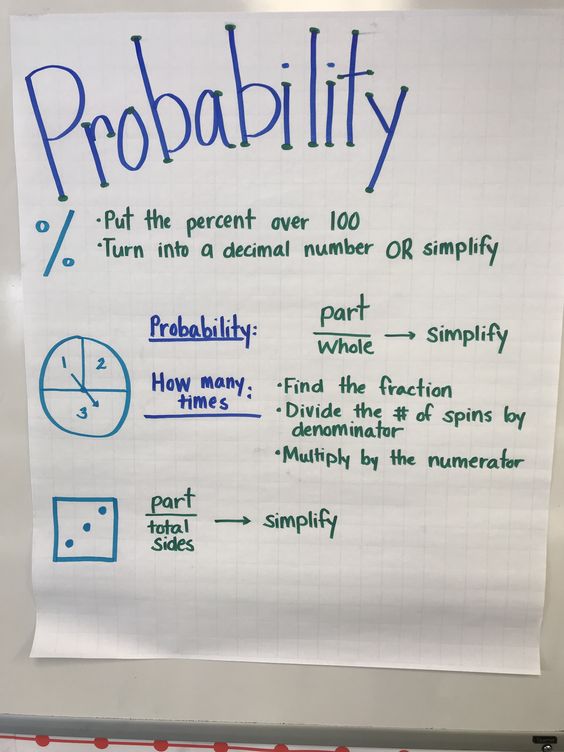 Probability
%
•Put the percent over 100
•Turn into a decimal number OR simplify
Probability:
part
whole
→ simplify
1
2
3
How many times:
•Find the fraction
•Divide the # of spins by
denominator
•Multiply by the numerator
part
total
sides
→ simplify